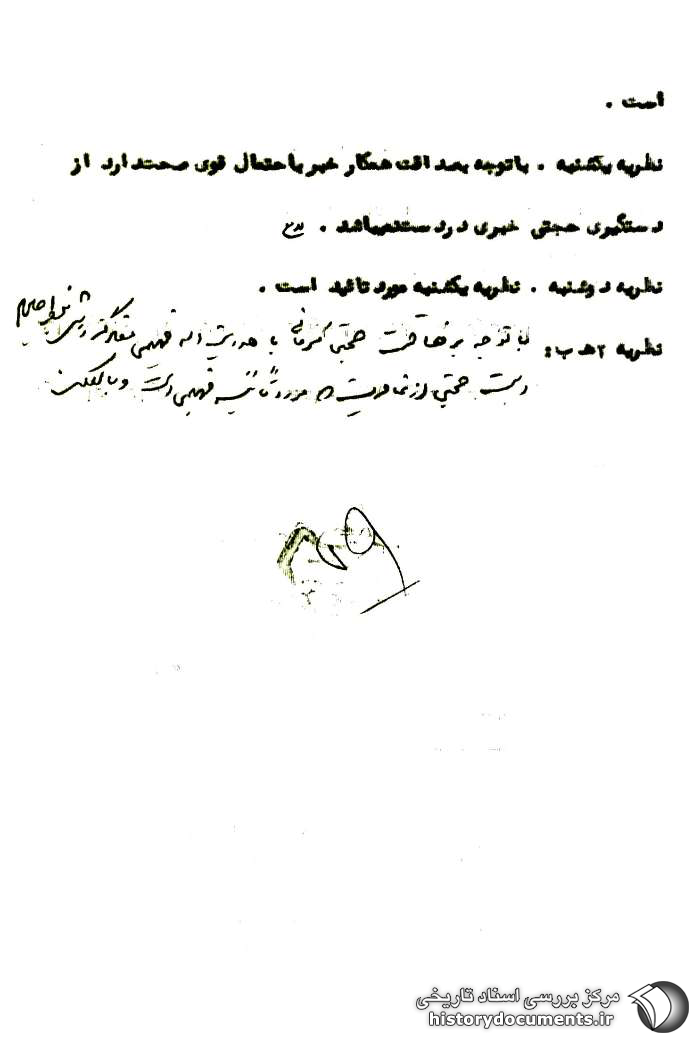 است .
نظریه یکشنبه . باتوجه بصداقت همکار خبر باحتمال قوی صحت دارد از
دستگیری حجتی خبری در دست نمیباشد .
نظریه دوشنبه . نظریه یکشنبه مورد تائید است .
نظریه ۲ ه‍ ب : با توجه به رفاقت حجتی کرمانی با فهیمی
است حجتی از مورد تائید فهیمی است و بالعکس
مرکز بررسی اسناد تاریخی
historydocuments.ir